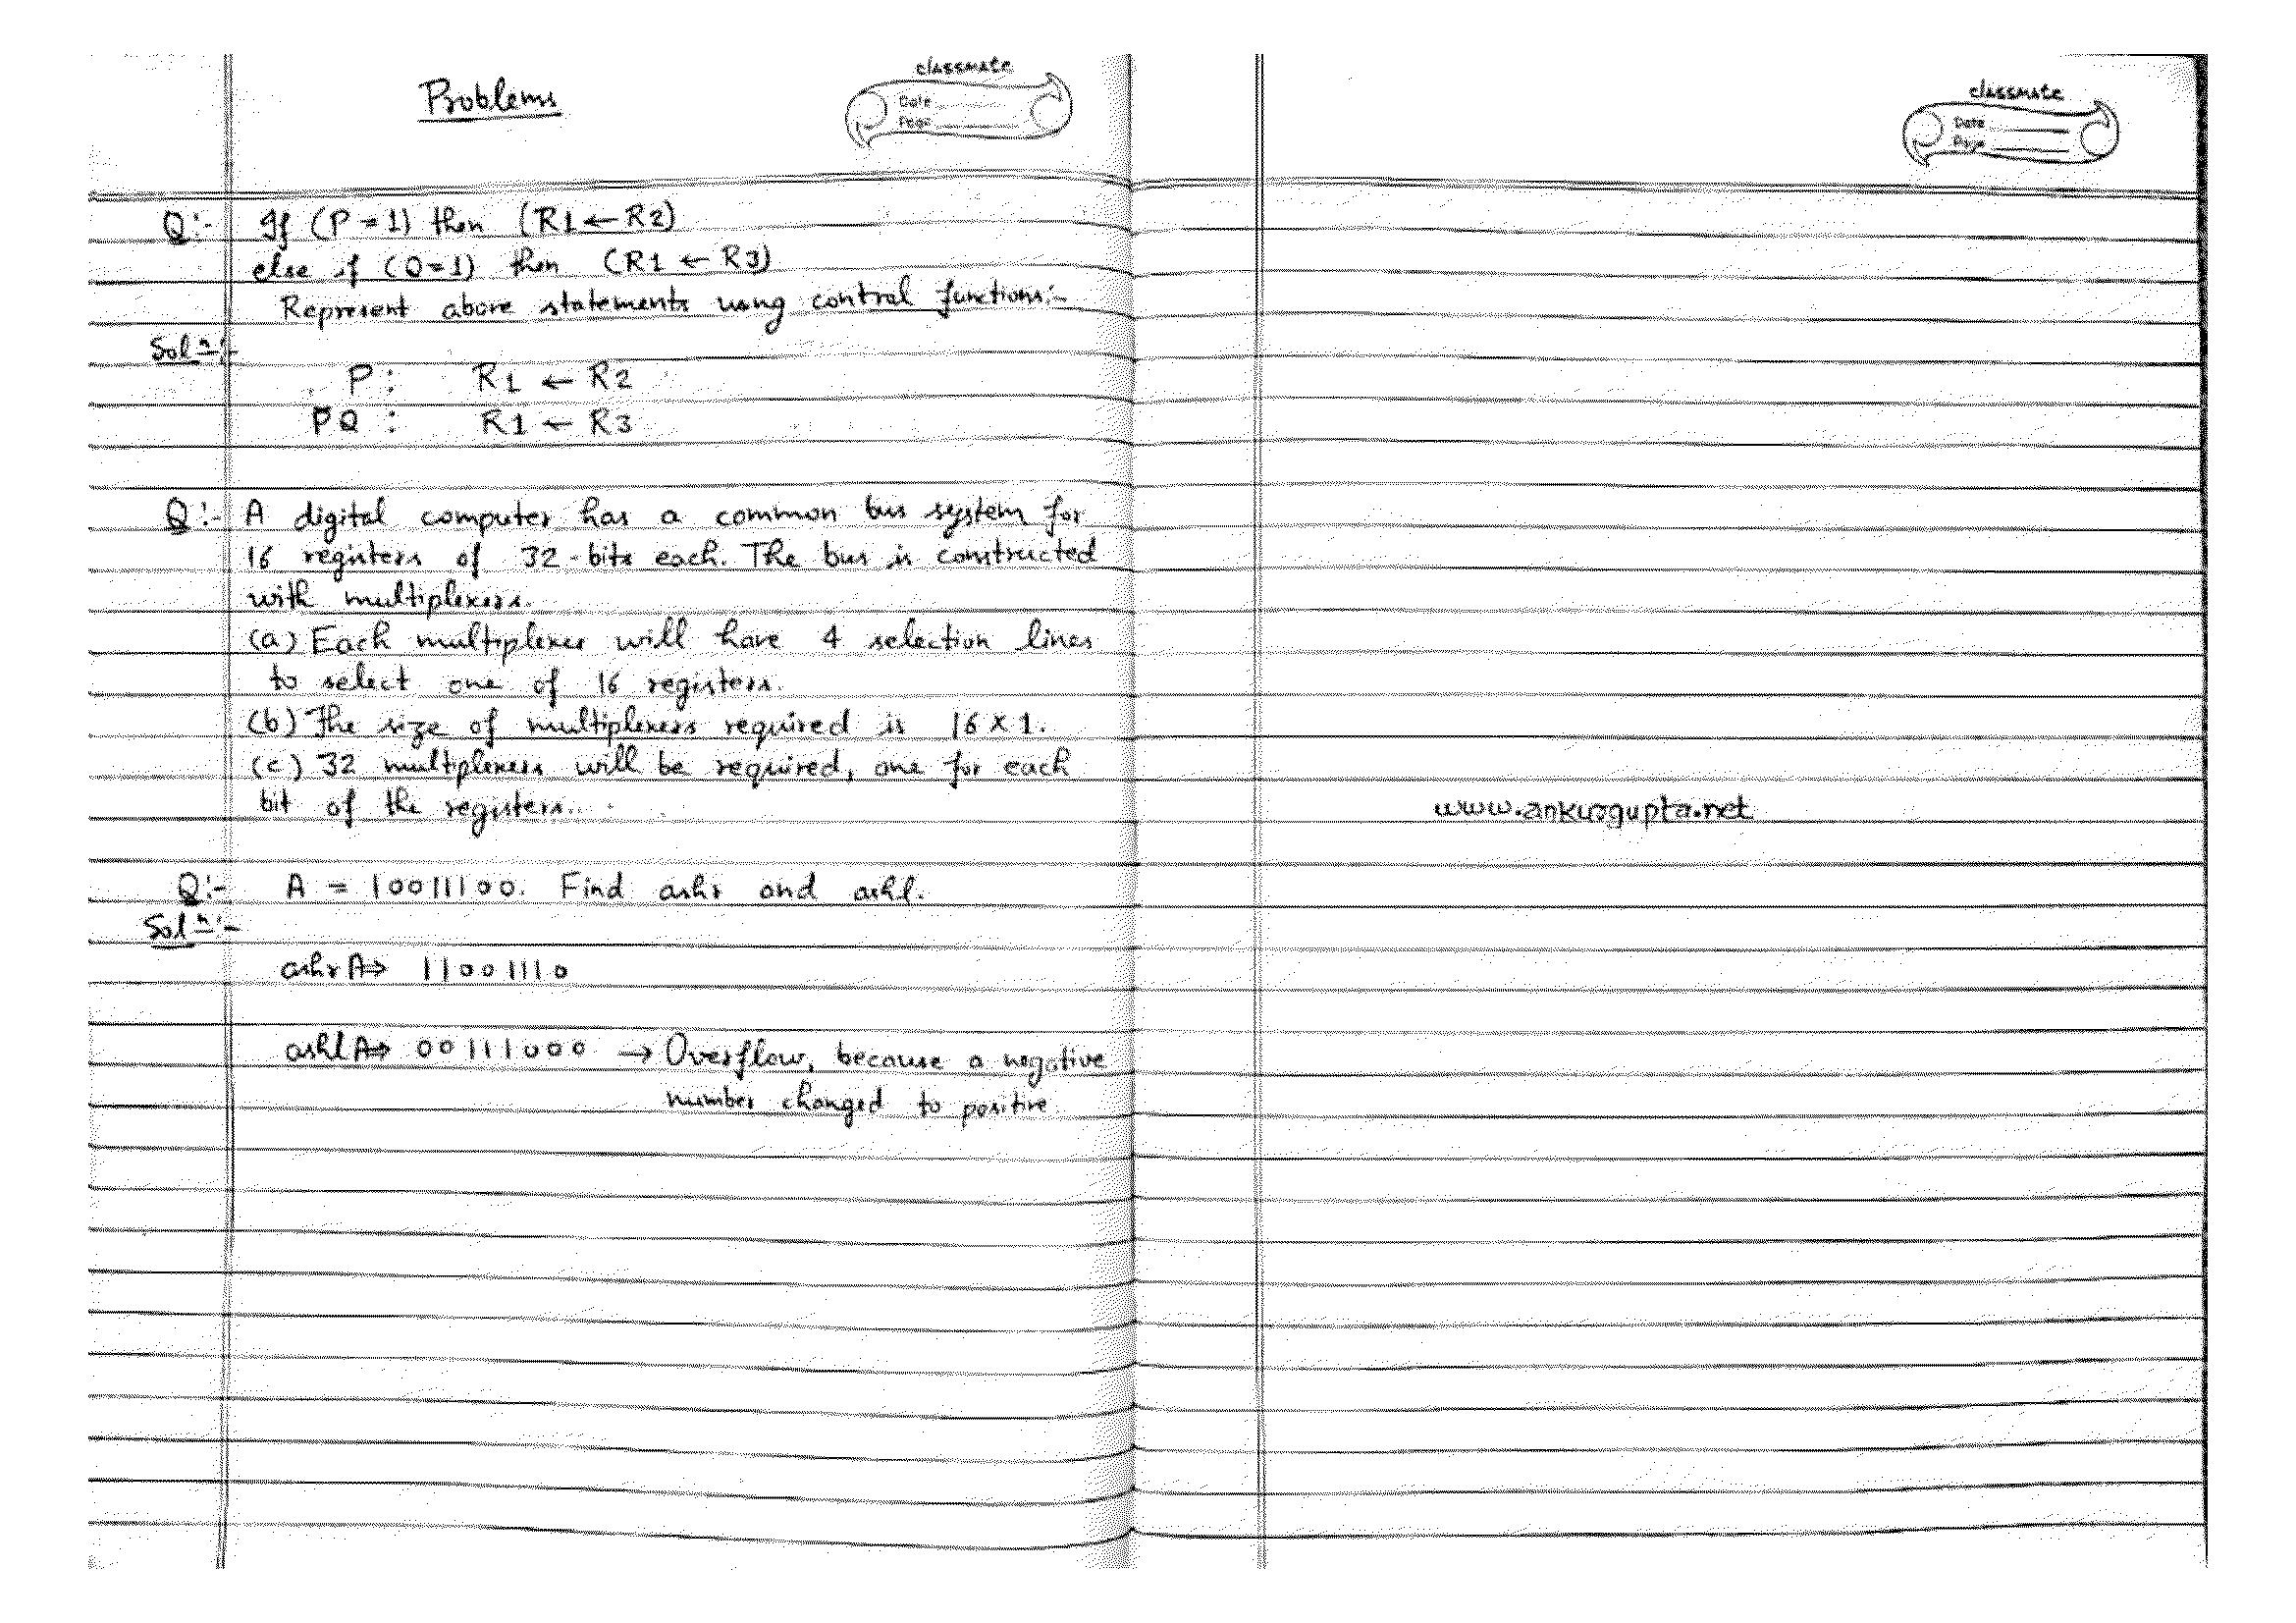 Problems
classmate
Date
Page
Q:- If (P=1) then (R1 ← R2)
else if (Q=1) then (R1 ← R3)
Represent above statements using control functions:-
Solⁿ:-
P : R1 ← R2
PQ : R1 ← R3
Q:- A digital computer has a common bus system for
16 registers of 32-bits each. The bus is constructed
with multiplexers.
(a) Each multiplexer will have 4 selection lines
to select one of 16 registers.
(b) The size of multiplexers required is 16 x 1.
(c) 32 multiplexers will be required, one for each
bit of the registers.
Q:- A = 10011100. Find ashr and ashl.
Solⁿ:-
ashr A⇒ 11001110
ashl A⇒ 00111000 → Overflow, because a negative
number changed to positive
classmate
Date
Page
www.ankurgupta.net